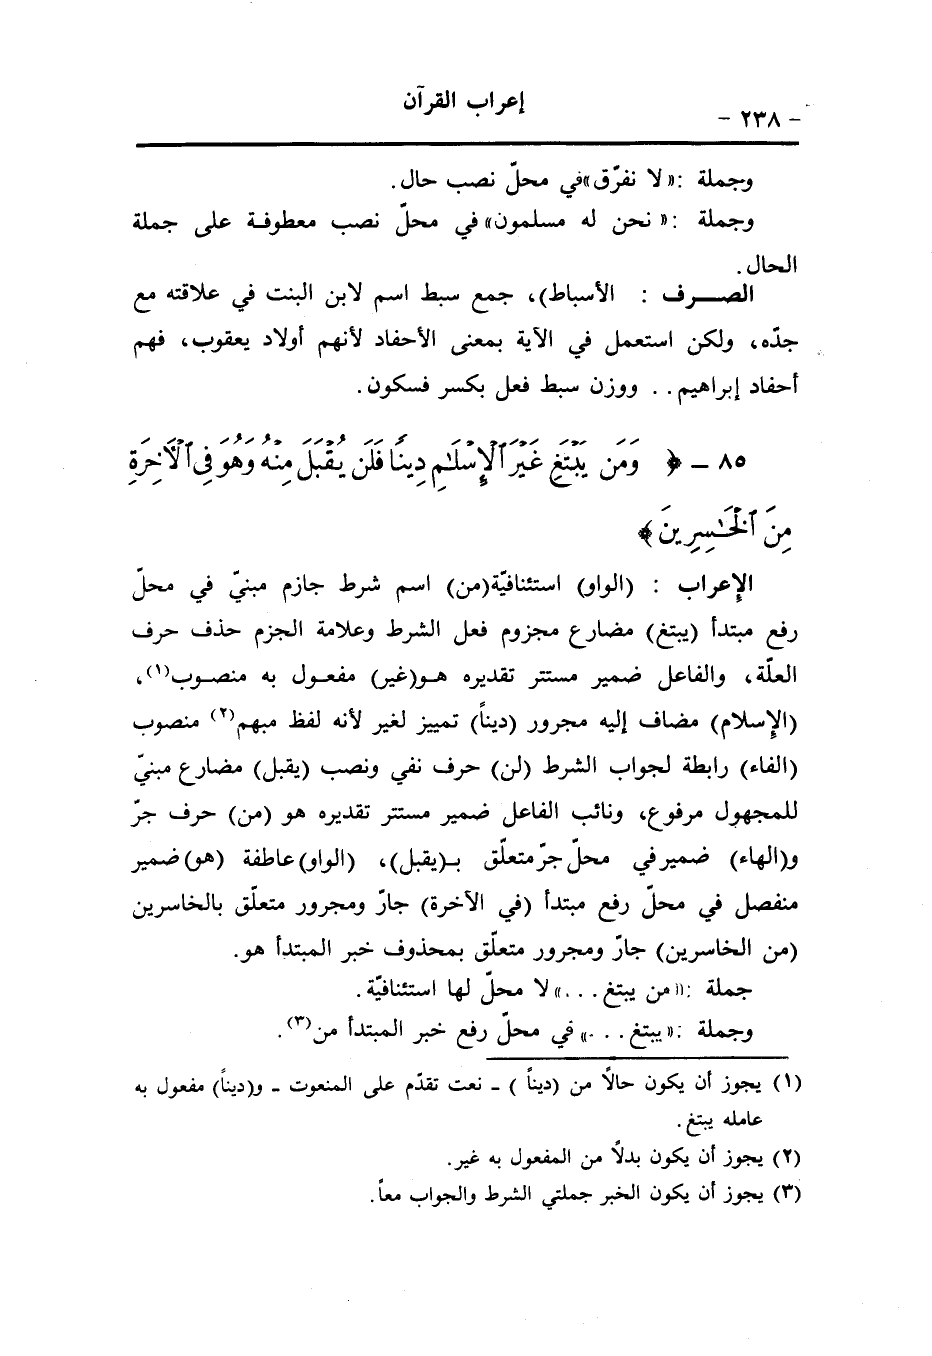 إعراب القرآن
- ٢٣٨ -
وجملة :« لا نفرّق»في محلّ نصب حال.
وجملة :« نحن له مسلمون» في محلّ نصب معطوفة على جملة
الحال.
الصرف : الأسباط)، جمع سبط اسم لابن البنت في علاقته مع
جدّه، ولكن استعمل في الآية بمعنى الأحفاد لأنهم أولاد يعقوب، فهم
أحفاد إبراهيم.. ووزن سبط فعل بكسر فسكون.
٨٥ - ﴿ وَمَن يَبْتَغِ غَيْرَ ٱلْإِسْلَٰمِ دِينًا فَلَن يُقْبَلَ مِنْهُ وَهُوَ فِى ٱلْأٓخِرَةِ
مِنَ ٱلْخَٰسِرِينَ ﴾
الإعراب : (الواو) استئنافيّة(من) اسم شرط جازم مبنيّ في محلّ
رفع مبتدأ (يبتغ) مضارع مجزوم فعل الشرط وعلامة الجزم حذف حرف
العلّة، والفاعل ضمير مستتر تقديره هو(غير) مفعول به منصوب(١)،
(الإسلام) مضاف إليه مجرور (ديناً) تمييز لغير لأنه لفظ مبهم(٢) منصوب
(الفاء) رابطة لجواب الشرط (لن) حرف نفي ونصب (يقبل) مضارع مبنيّ
للمجهول مرفوع، ونائب الفاعل ضمير مستتر تقديره هو (من) حرف جرّ
و(الهاء) ضمير في محلّ جرّ متعلّق بـ(يقبل)، (الواو) عاطفة (هو) ضمير
منفصل في محلّ رفع مبتدأ (في الآخرة) جارّ ومجرور متعلّق بالخاسرين
(من الخاسرين) جارّ ومجرور متعلّق بمحذوف خبر المبتدأ هو.
جملة :« من يبتغ ...» لا محلّ لها استئنافيّة.
وجملة :« يبتغ ...» في محلّ رفع خبر المبتدأ من(٣).
(١) يجوز أن يكون حالًا من (ديناً ) - نعت تقدّم على المنعوت - و(ديناً) مفعول به
عامله يبتغ.
(٢) يجوز أن يكون بدلًا من المفعول به غير.
(٣) يجوز أن يكون الخبر جملتي الشرط والجواب معاً.